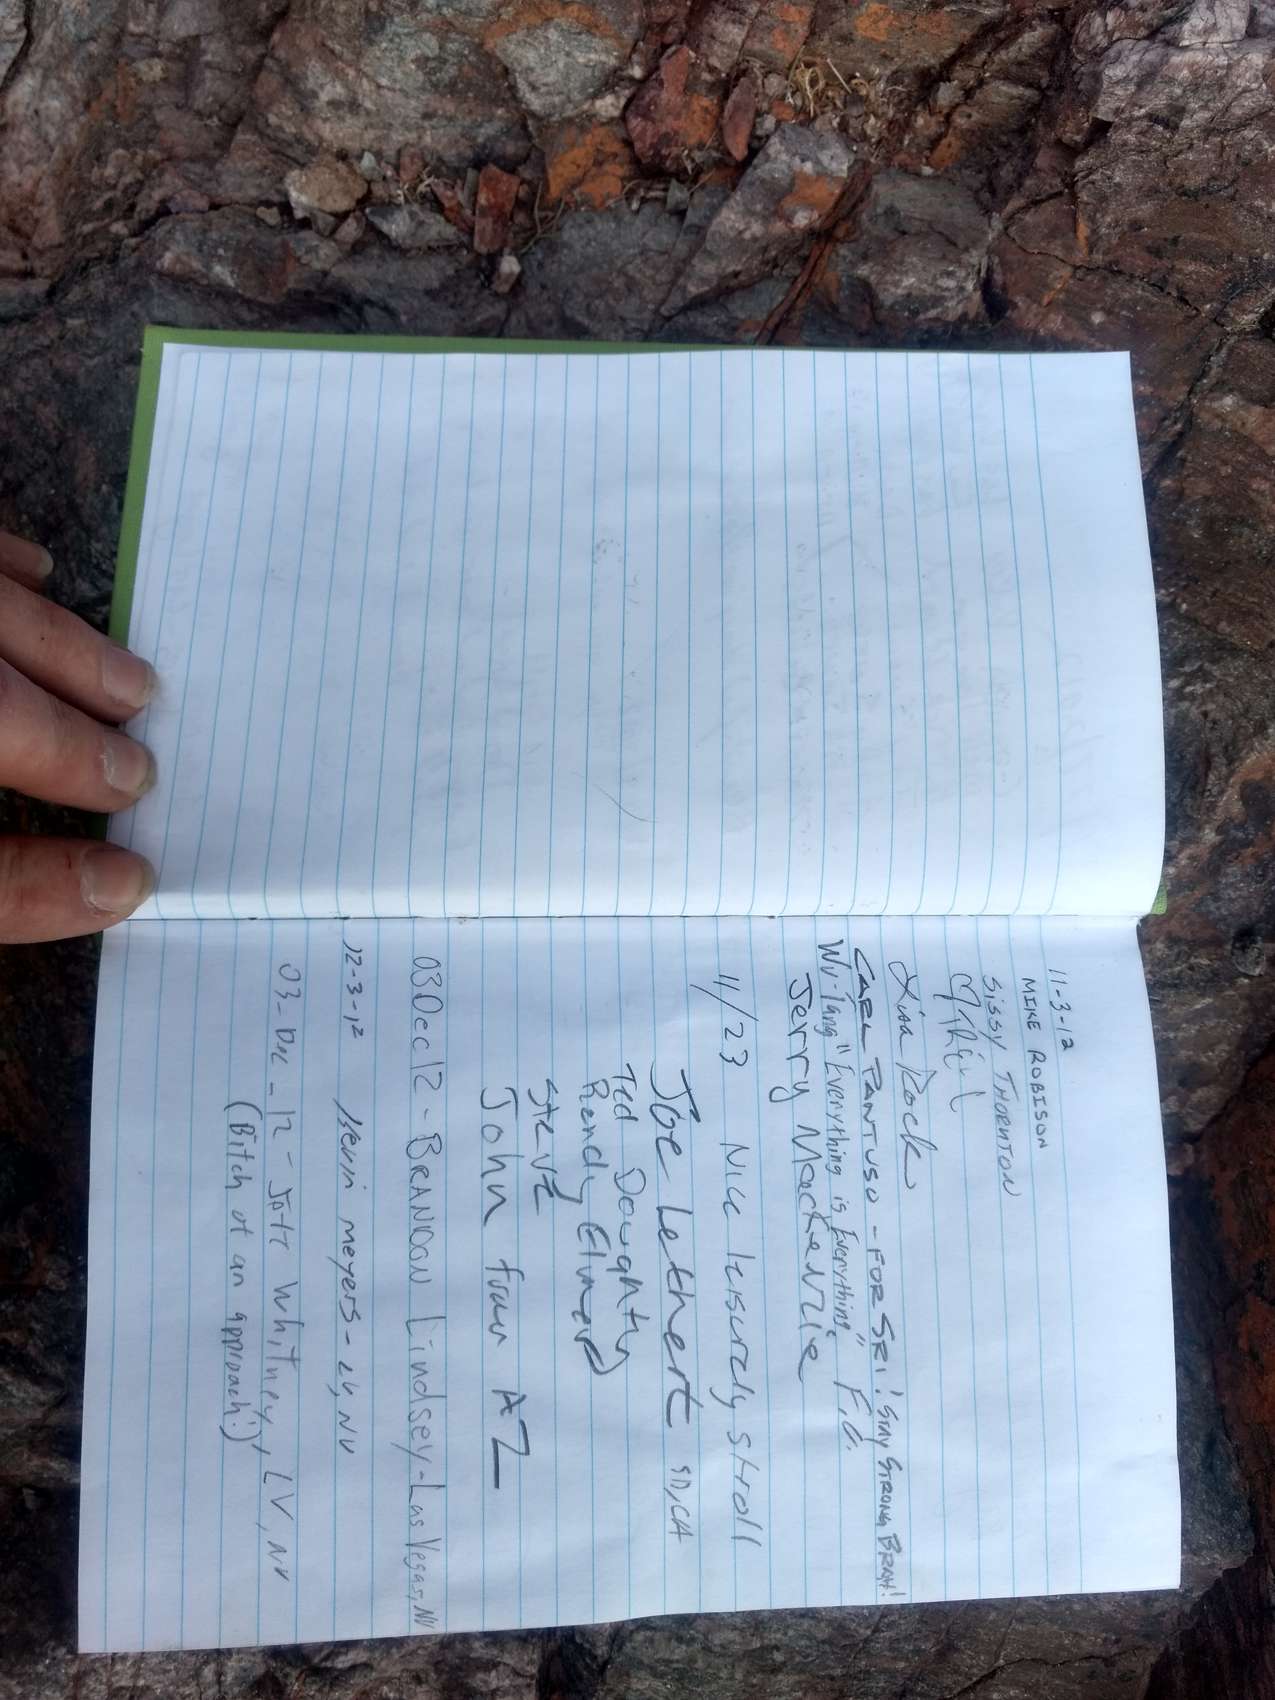 11-3-12
MIKE ROBISON
SISSY THORNTON
Lisa Rock
CARL PANTUSO - FOR SRI! STAY STRONG BRAH!
Wu-Tang "Everything is Everything" F.G.
Jerry MacKenzie
11/23 Nice leisurely stroll
Joe Lethert SD, CA
Ted Doughty
Randy Elmer
STEVE
John from AZ
03Dec12 - BRANDON Lindsey - Las Vegas, NV
12-3-12 Kevin meyers - LV, NV
03-Dec-12 - Jeff Whitney, LV, NV
(Bitch of an approach!)